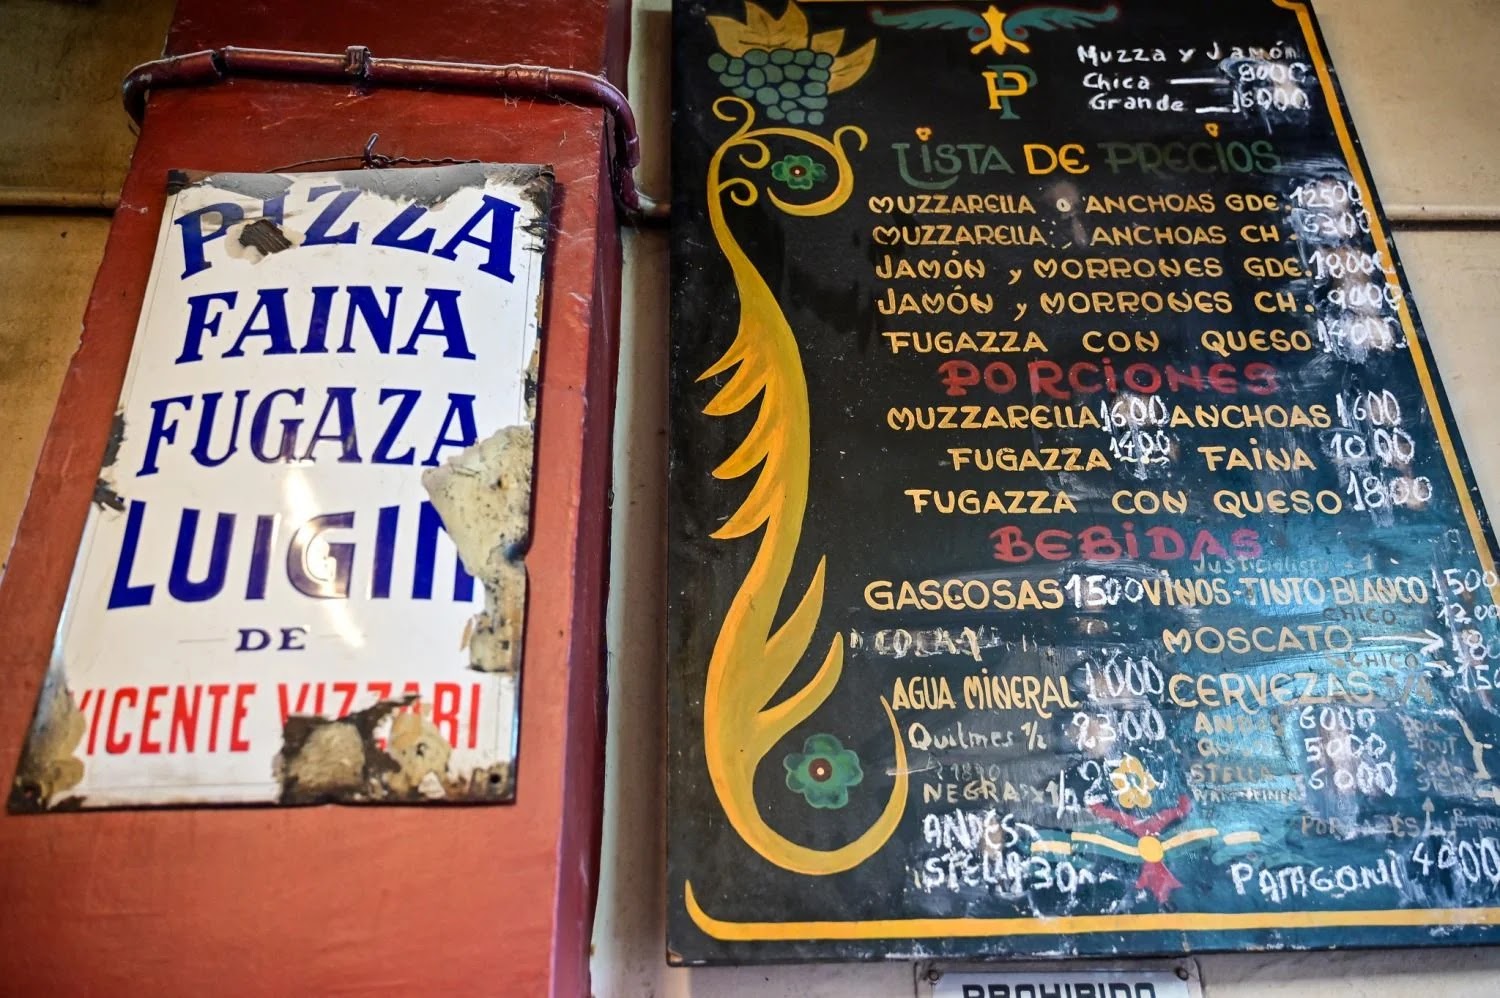 PIZZA
FAINA
FUGAZA
LUIGIN
DE
VICENTE VIZZARI
PP
Muzza y Jamón
Chica 8000
Grande 16000
LISTA DE PRECIOS
MUZZARELLA o ANCHOAS GDE. 12500
MUZZARELLA ANCHOAS CH 6300
JAMÓN y MORRONES GDE. 18000
JAMÓN y MORRONES CH. 9000
FUGAZZA CON QUESO 14000
PORCIONES
MUZZARELLA 1600 ANCHOAS 1600
FUGAZZA 1400 FAINA 1000
FUGAZZA CON QUESO 1800
BEBIDAS
Justicialista
GASEOSAS 1500 VINOS-TINTO BLANCO 1500
CHICO 1200
MOSCATO
CHICO
AGUA MINERAL 1000 CERVEZAS
Quilmes 1/2 2300 ANDES 6000
5000
1890
NEGRA x 1/2 STELLA 6000
ANDES
STELLA
PATAGONI
PROHIBIDO